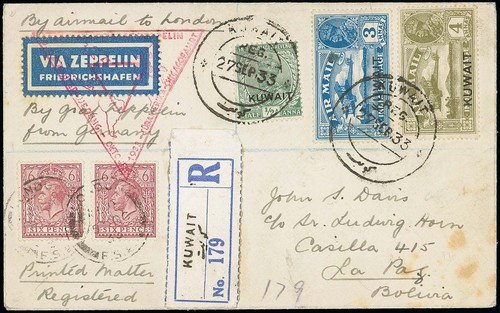 By airmail to London
VIA ZEPPELIN
FRIEDRICHSHAFEN
By Graf Zeppelin
from Germany
KUWAIT
REG.
27 SEP. 33
كويت
KUWAIT
HALF ANNA
AIR MAIL
3
ANNAS
KUWAIT
AIR MAIL
4
KUWAIT
KUWAIT
REG.
27 SEP. 33
كويت
6 6
SIX PENCE SIX PENCE
Printed Matter
Registered
R
KUWAIT
كويت
No. 179
John S. Davis
c/o Sr. Ludwig Horn
Casilla 415
La Paz
Bolivia
179